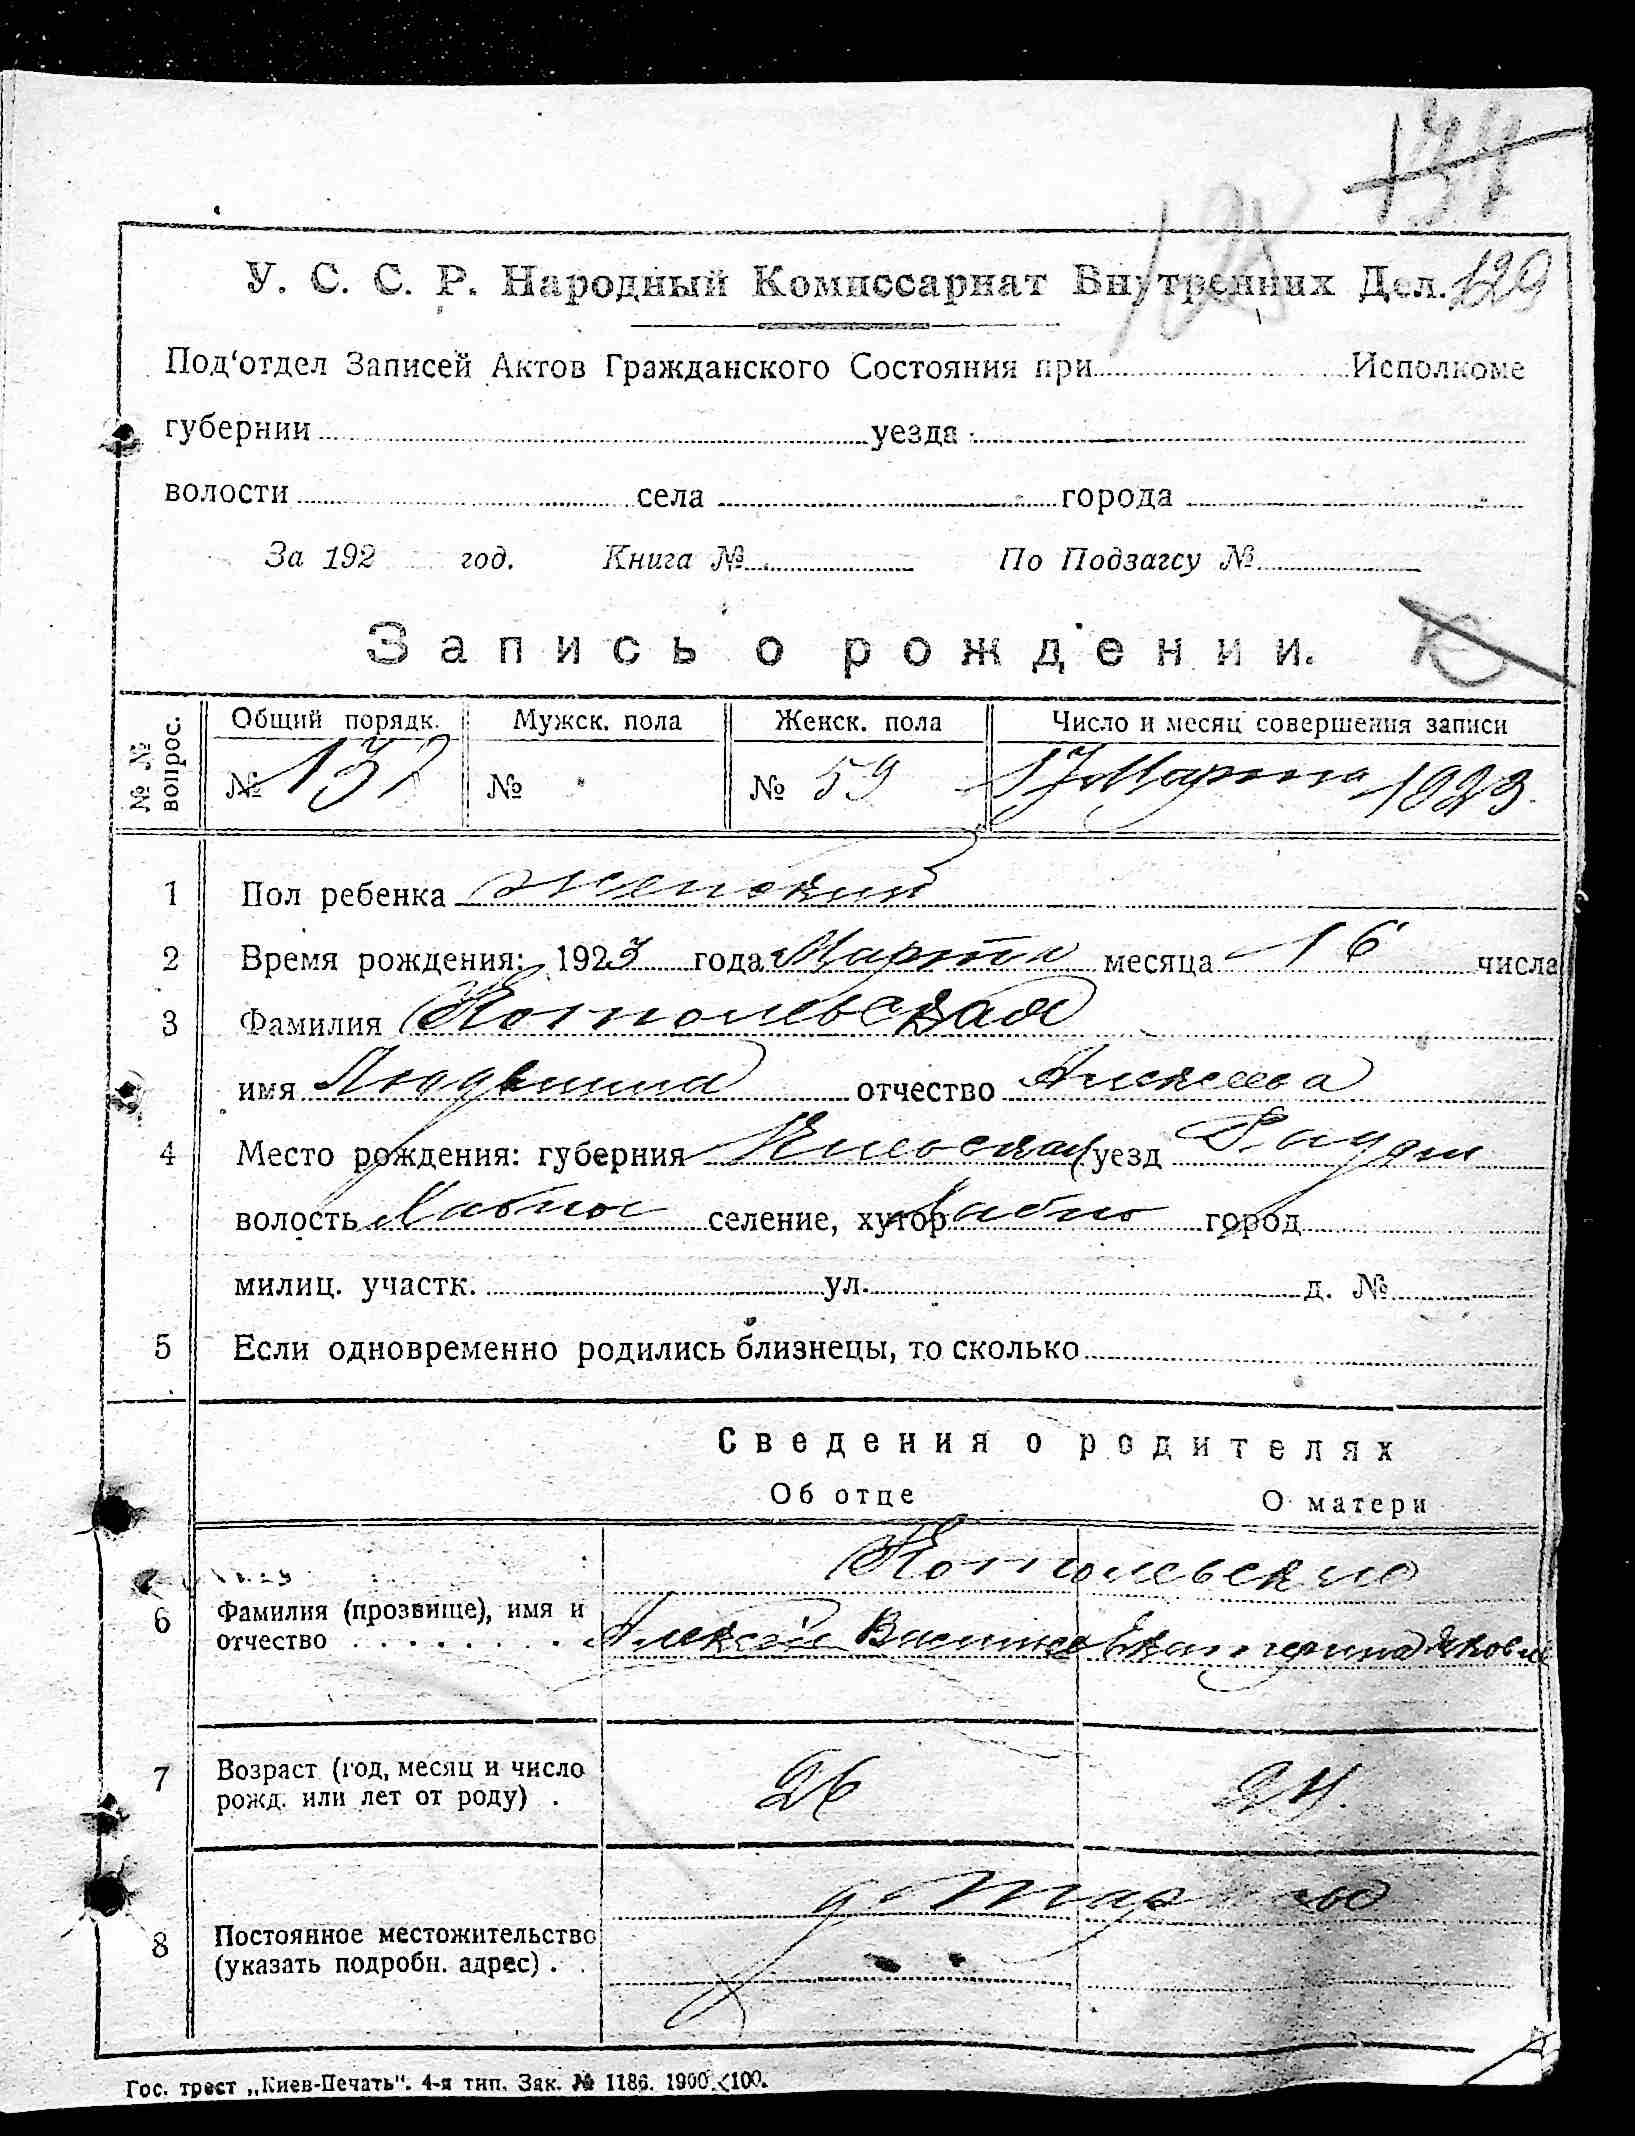 У. С. С. Р. Народный Комиссариат Внутренних Дел. 129
128
Под‘отдел Записей Актов Гражданского Состояния при Исполкоме
губернии уезда
волости села города
За 192 год. Книга № По Подзагсу №
Запись о рождении.
№ № вопрос. Общий порядк. Мужск. пола Женск. пола Число и месяц совершения записи
№ 137 № № 59 17 Марта 1923.
1 Пол ребенка Женский
2 Время рождения: 1923 года Марта месяца 16 числа
3 Фамилия
имя Людвина отчество Алексеева
4 Место рождения: губерния Киевская уезд Радом
волость Хабное селение, хутор Хабно город
милиц. участк. ул. д. №
5 Если одновременно родились близнецы, то сколько
Сведения о родителях
Об отце О матери
6 Фамилия (прозвище), имя и
отчество Алексей Василиев Екатерина Яковле
7 Возраст (год, месяц и число
рожд. или лет от роду) 26 24.
8 Постоянное местожительство
(указать подробн. адрес)
Гос. трест „Киев-Печать“. 4-я тип. Зак. № 1186. 1900×100.